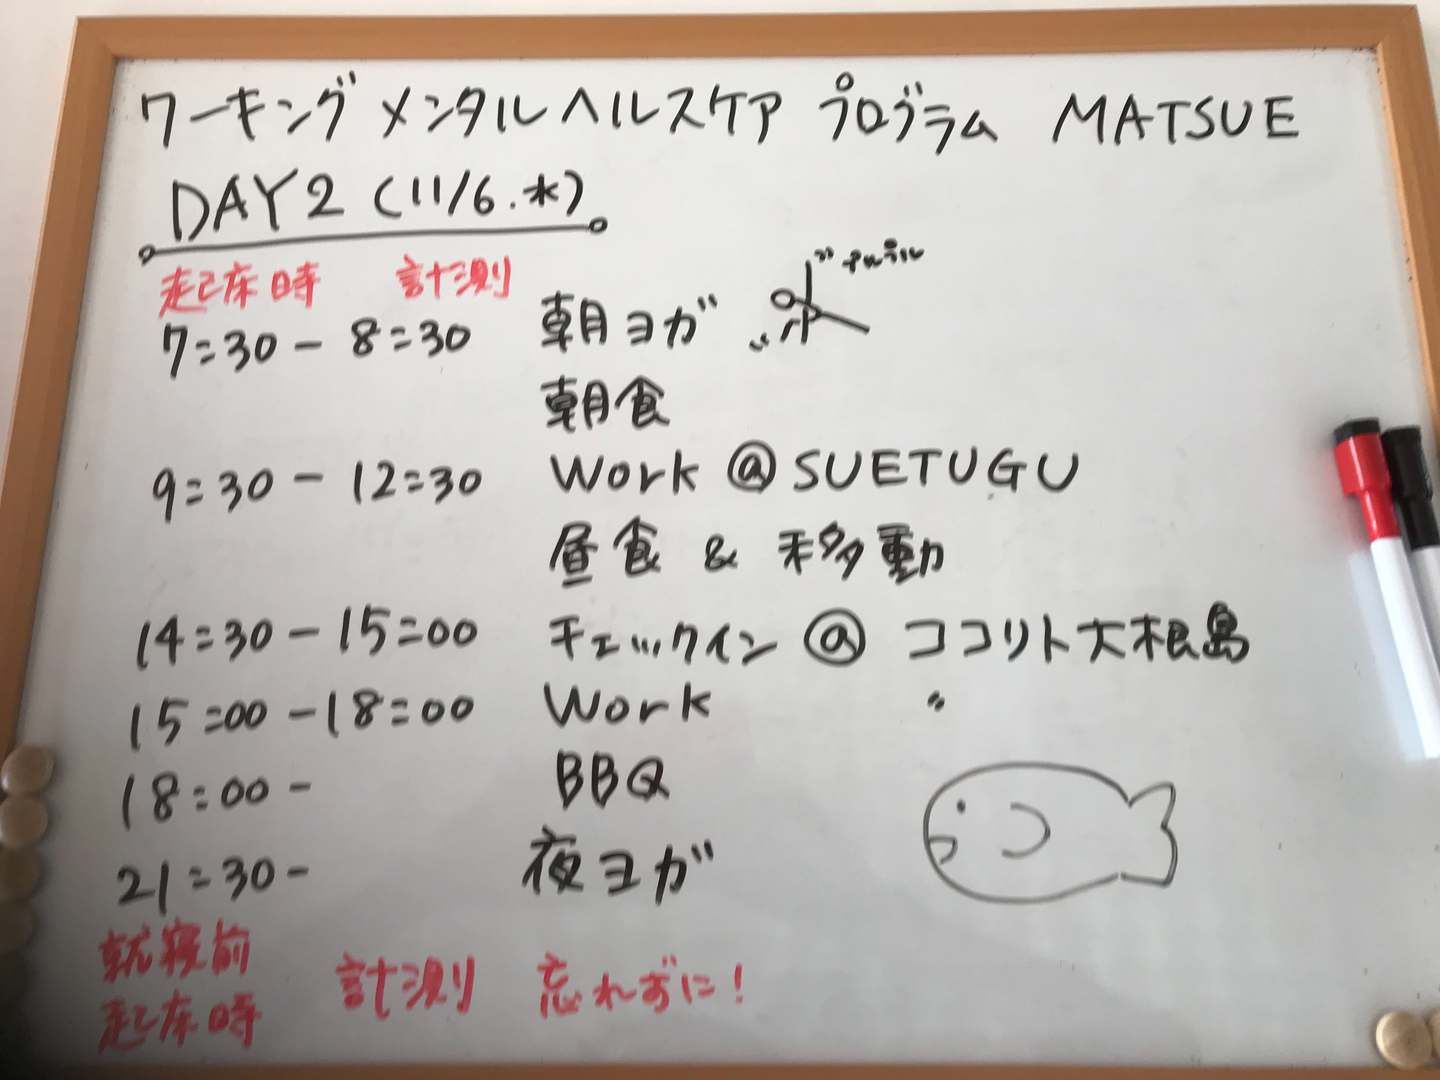 ワーキングメンタルヘルスケア プログラム MATSUE
DAY2 (11/6.水)
起床時 計測
7:30 - 8:30 朝ヨガ プルプル
朝食
9:30 - 12:30 Work @ SUETUGU
昼食 & 移動
14:30 - 15:00 チェックイン @ ココリト大根島
15:00 - 18:00 Work 〃
18:00 - BBQ
21:30 - 夜ヨガ
就寝前
起床時 計測 忘れずに!